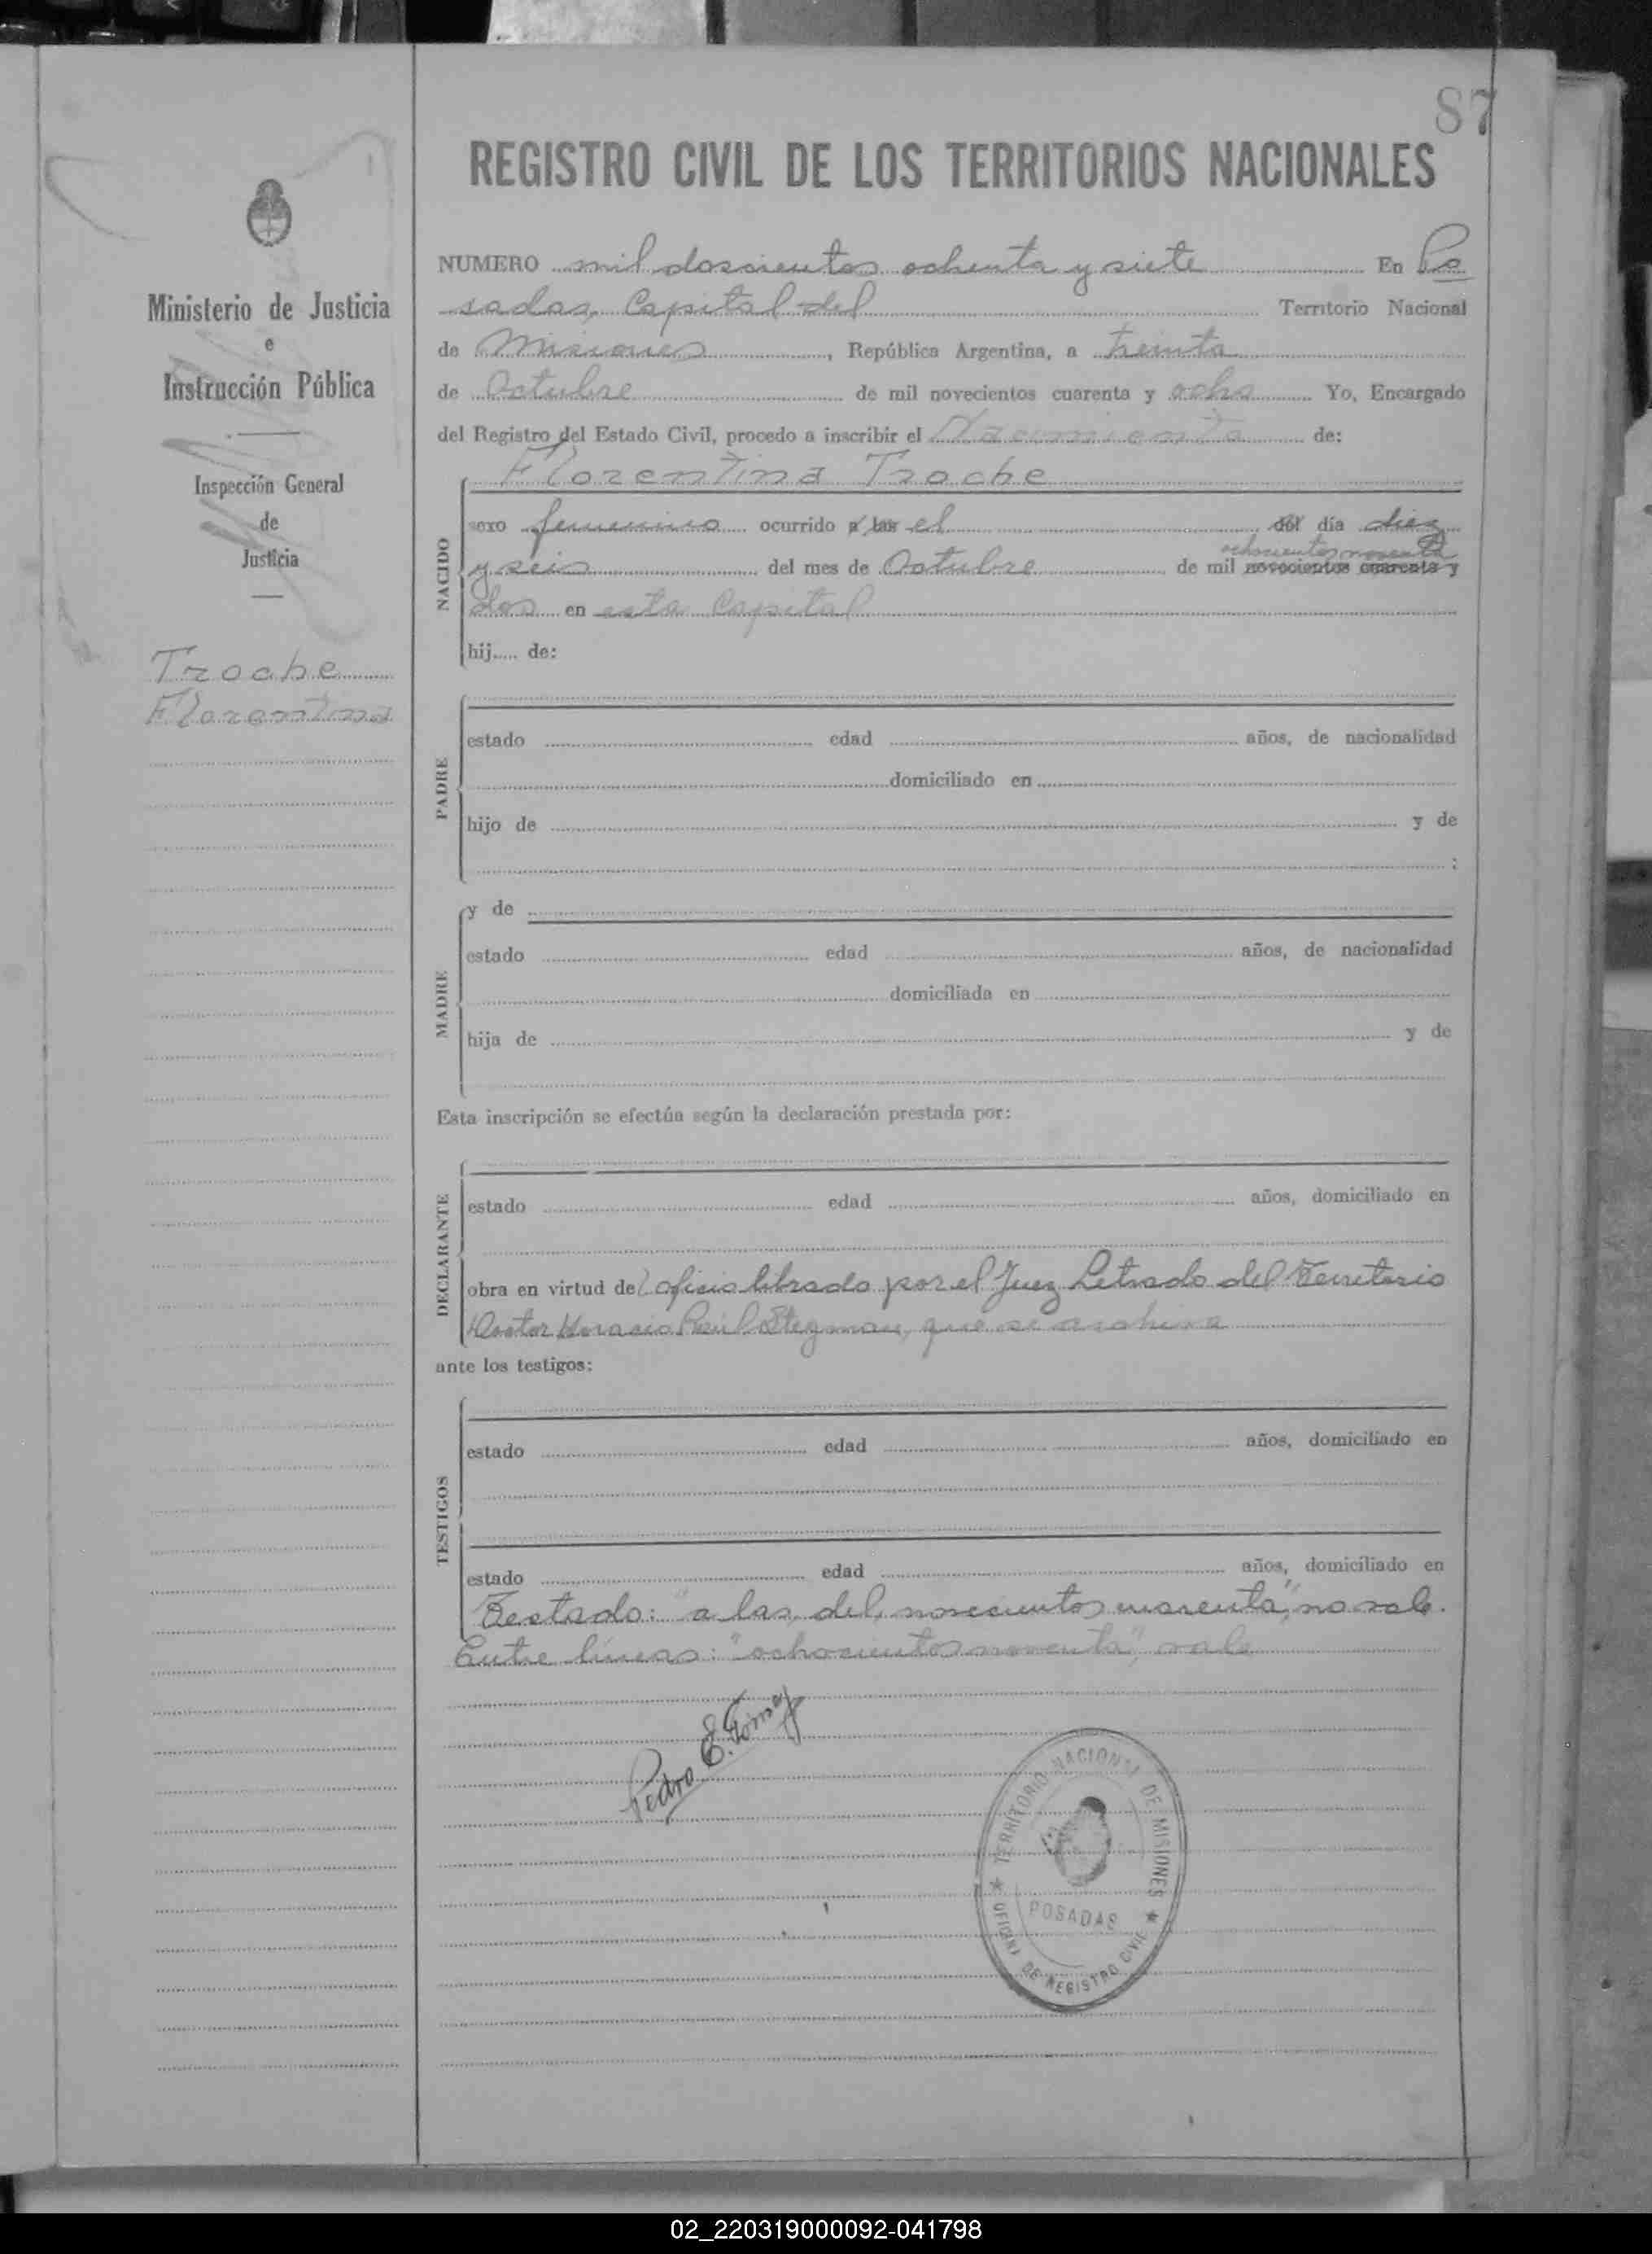 87
REGISTRO CIVIL DE LOS TERRITORIOS NACIONALES
NUMERO mil doscientos ochenta y siete En Po
sadas, Capital del Territorio Nacional
de Misiones, República Argentina, a treinta
de Octubre de mil novecientos cuarenta y ocho Yo, Encargado
del Registro del Estado Civil, procedo a inscribir el Nacimiento de:
Ministerio de Justicia
e
Instrucción Pública
Inspección General
de
Justicia
Troche
Florentina
NACIDO
Florentina Troche
sexo femenino ocurrido a las el del día diez
ochocientos noventa
y seis del mes de Octubre de mil novecientos cuarenta y
dos en esta Capital
hij..... de:
PADRE
estado edad años, de nacionalidad
domiciliado en
hijo de y de
;
MADRE
y de
estado edad años, de nacionalidad
domiciliada en
hija de y de
Esta inscripción se efectúa según la declaración prestada por:
DECLARANTE
estado edad años, domiciliado en
obra en virtud del oficio librado por el Juez Letrado del Territorio
Doctor Horacio Raúl Stegman, que se archiva
ante los testigos:
TESTIGOS
estado edad años, domiciliado en
estado edad años, domiciliado en
Testado: "a las, del, novecientos cuarenta", no vale.
Entre líneas: "ochocientos noventa", vale
Pedro E. Gómez
TERRITORIO NACIONAL DE MISIONES
POSADAS
OFICINA DE REGISTRO CIVIL
02_220319000092-041798